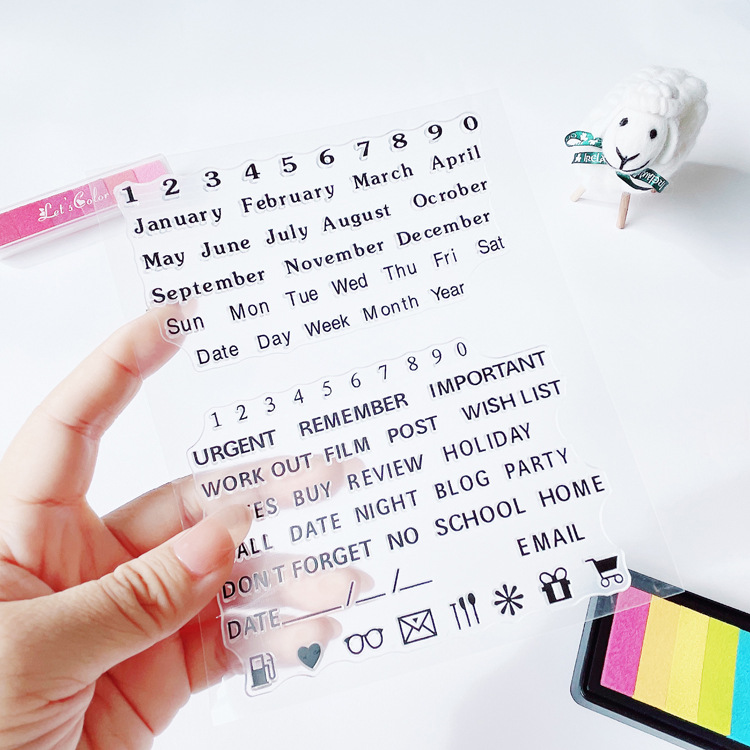 1 2 3 4 5 6 7 8 9 0
January February March April
May June July August Ocrober
September November December
Sun Mon Tue Wed Thu Fri Sat
Date Day Week Month Year
Let's Color
1 2 3 4 5 6 7 8 9 0
URGENT REMEMBER IMPORTANT
WORK OUT FILM POST WISH LIST
BUY REVIEW HOLIDAY
DATE NIGHT BLOG PARTY
DON'T FORGET NO SCHOOL HOME
DATE / / EMAIL